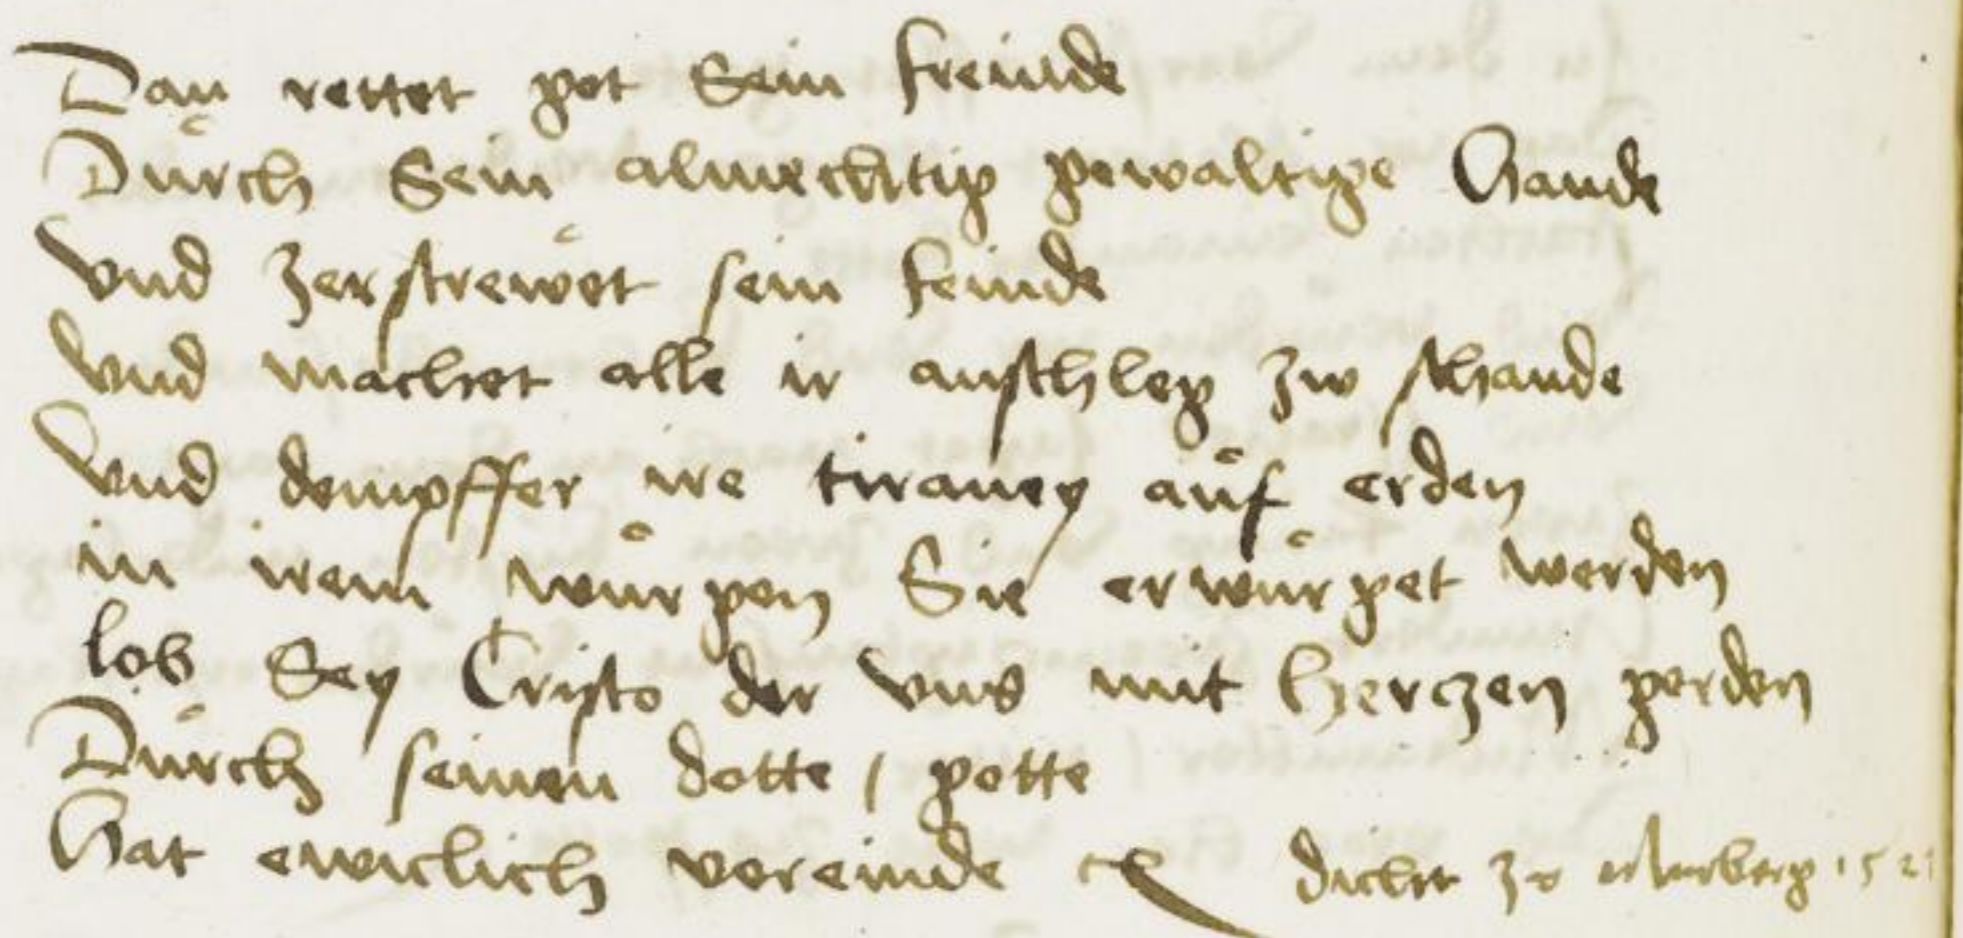 Dan rettet got Sein freinde
Durch Sein almechtig gewaltige hande
vnd zerstrewet sein feinde
vnd machet alle ir anschleg zw schande
vnd dempffet ire tiraney auf erden
in irem würgen Sie erwürget werden
lob Sey Cristo der vns mit herczen gerden
Durch seinen dotte / gotte
hat ewiclich vereinde
dicht zw nurberg 152